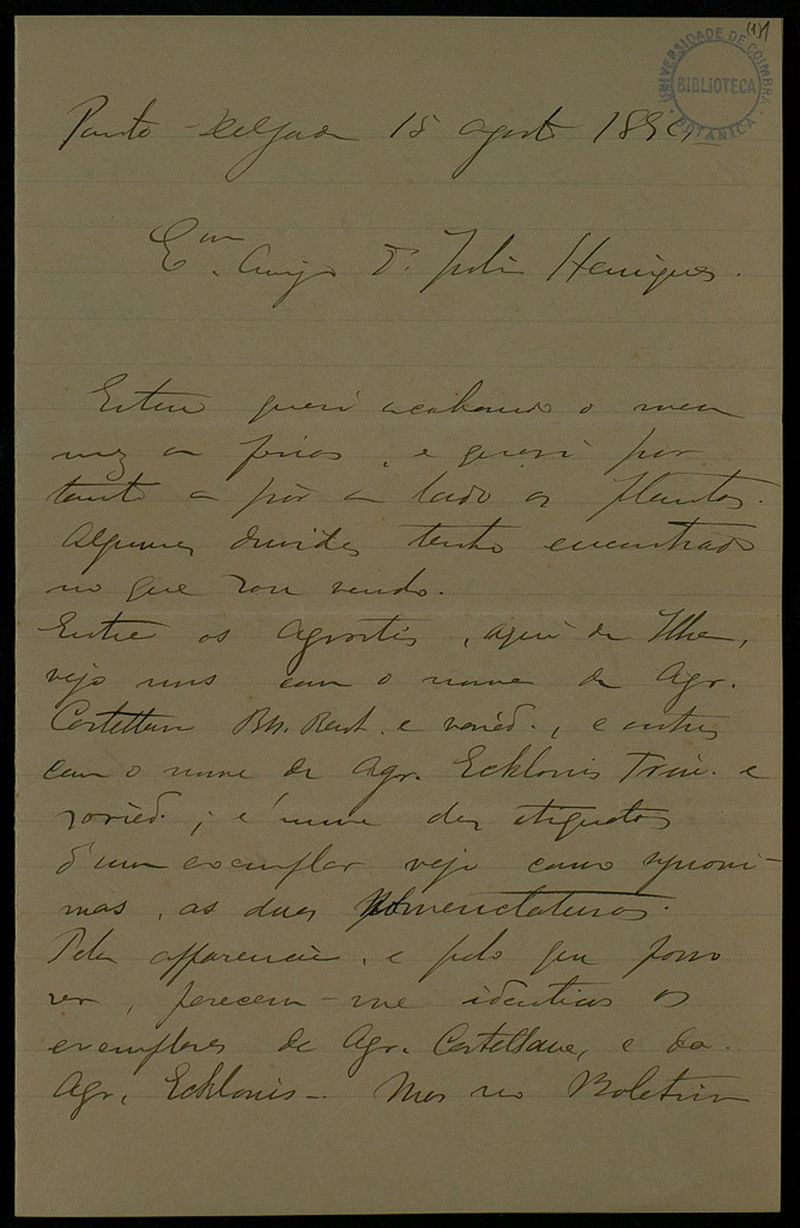 (1)
UNIVERSIDADE DE COIMBRA
BIBLIOTECA
BOTANICA
Ponta Delgada 15 agosto
Ex.mo Amigo Dr. Julio Henriques.
Estou quasi acabando o meu
mez de ferias, e quasi por
tanto a pôr de lado as plantas.
Algumas duvidas tenho encontrado
no que vou vendo.
Entre os Agrostis, aqui da Ilha,
vejo uns com o nome de Agr.
Castellana Bss. Reut. e varied., e outros
com o nome de Agr. Ecklonis Trin. e
varied.; e n'uma das etiquetas
d'um exemplar vejo como synoni-
mas, as duas nomenclaturas.
Pela apparencia, e pelo que posso
ver, parecem-me identicos os
exemplares da Agr. Castellana, e da
Agr. Ecklonis. Mas no Boletim